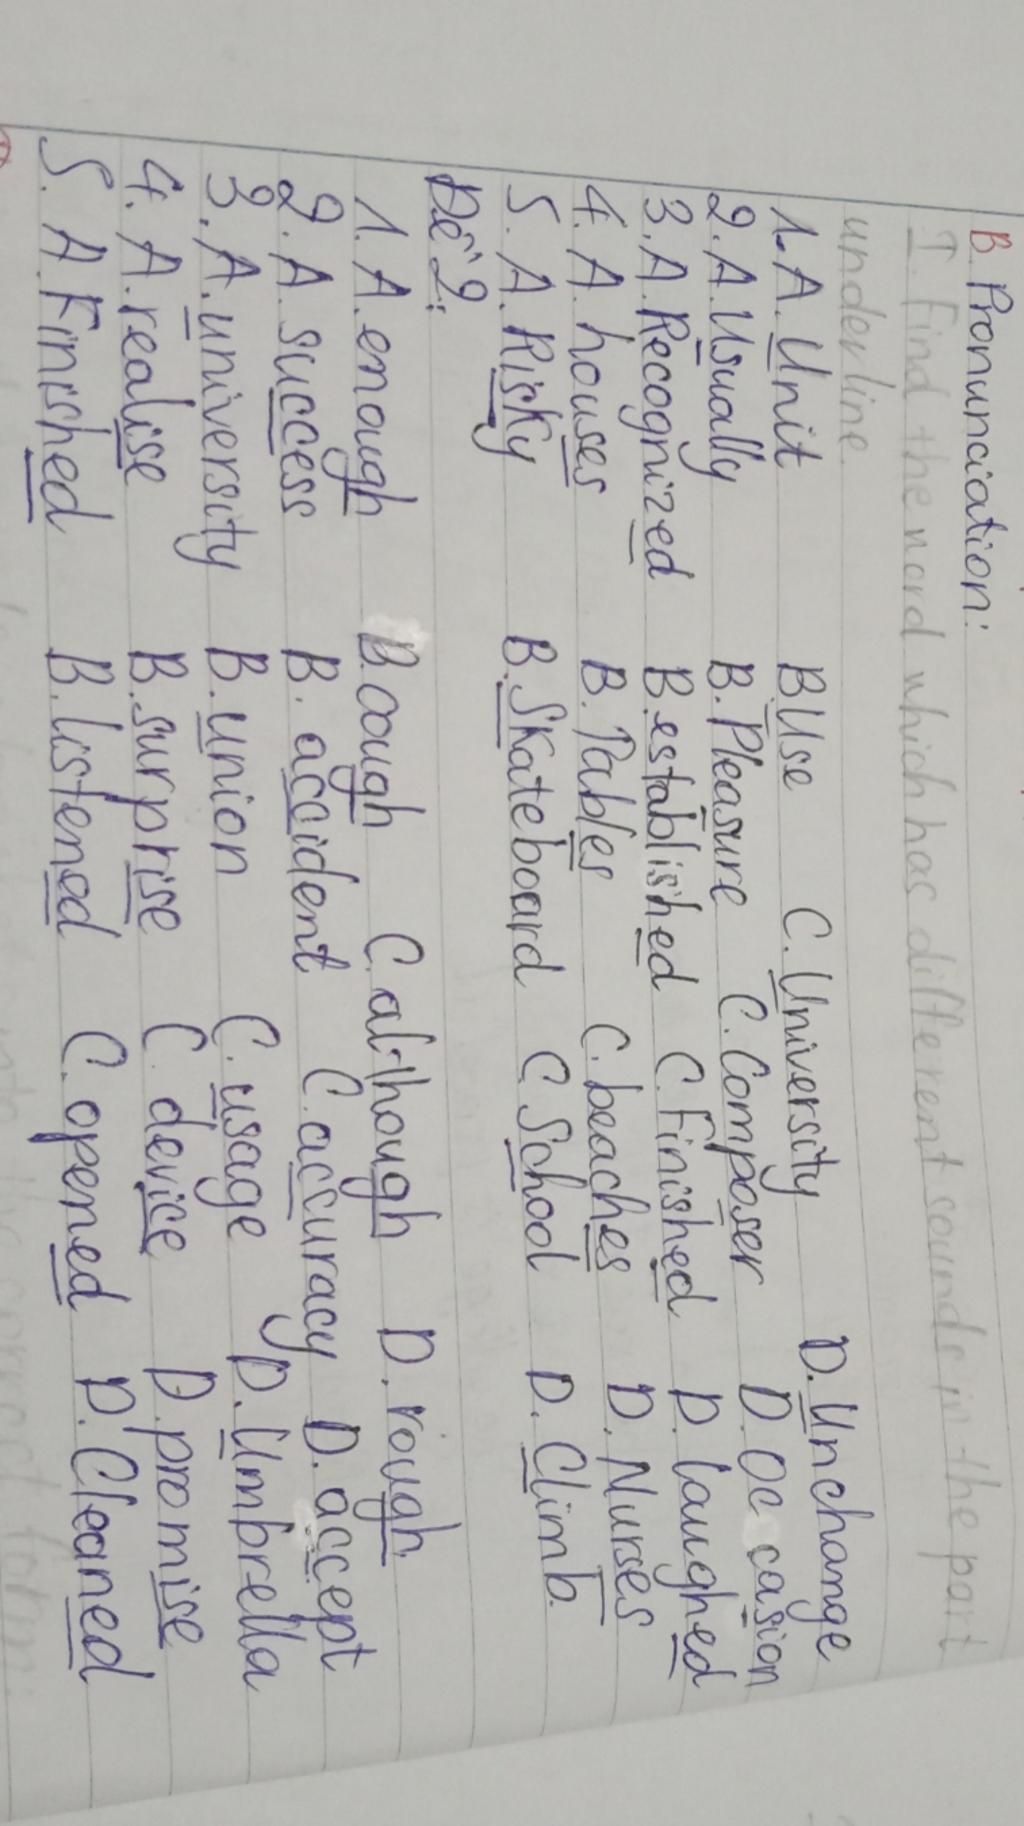 B. Pronunciation:
I. Find the word which has different sounds in the part
underline.
1. A. Unit B Use C. University D. Unchange
2. A. Usually B. Pleasure C. Composer D. Occasion
3. A. Recognized B. established C. Finished D. laughed
4. A. houses B. Tables C. beaches D. Nurses
5. A. Risky B. Skateboard C. School D. Climb.
Đề 2:
1. A. enough B. cough C. although D. rough
2. A. success B. accident C. accuracy D. accept
3. A. university B. union C. usage D. Umbrella
4. A. realise B. surprise C. device D. promise
5. A. Finished B. listened C. opened D. Cleaned